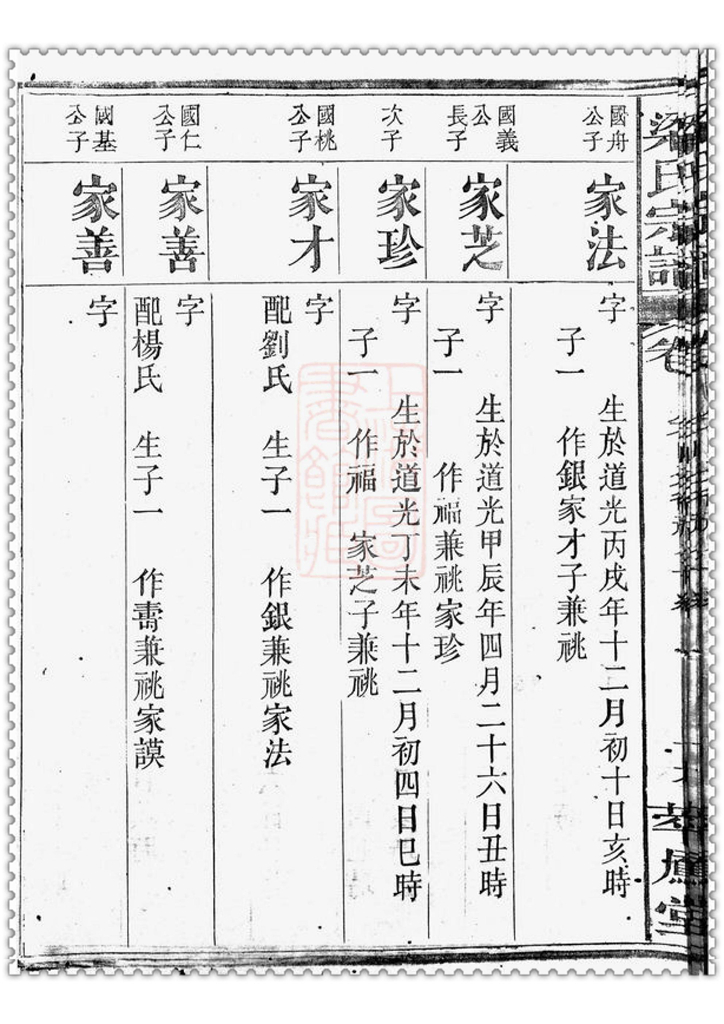 梁氏宗譜
國舟公子
家法
字　生於道光丙戌年十二月初十日亥時
子一　作銀家才子兼祧
國義公長子
家芝
字　生於道光甲辰年四月二十六日丑時
子一　作福兼祧家珍
次子
家珍
字　生於道光丁未年十二月初四日巳時
子一　作福　家芝子兼祧
國桃公子
家才
字
配劉氏　生子一　作銀兼祧家法
國仁公子
家善
字
配楊氏　生子一　作壽兼祧家謨
國基公子
家善
字